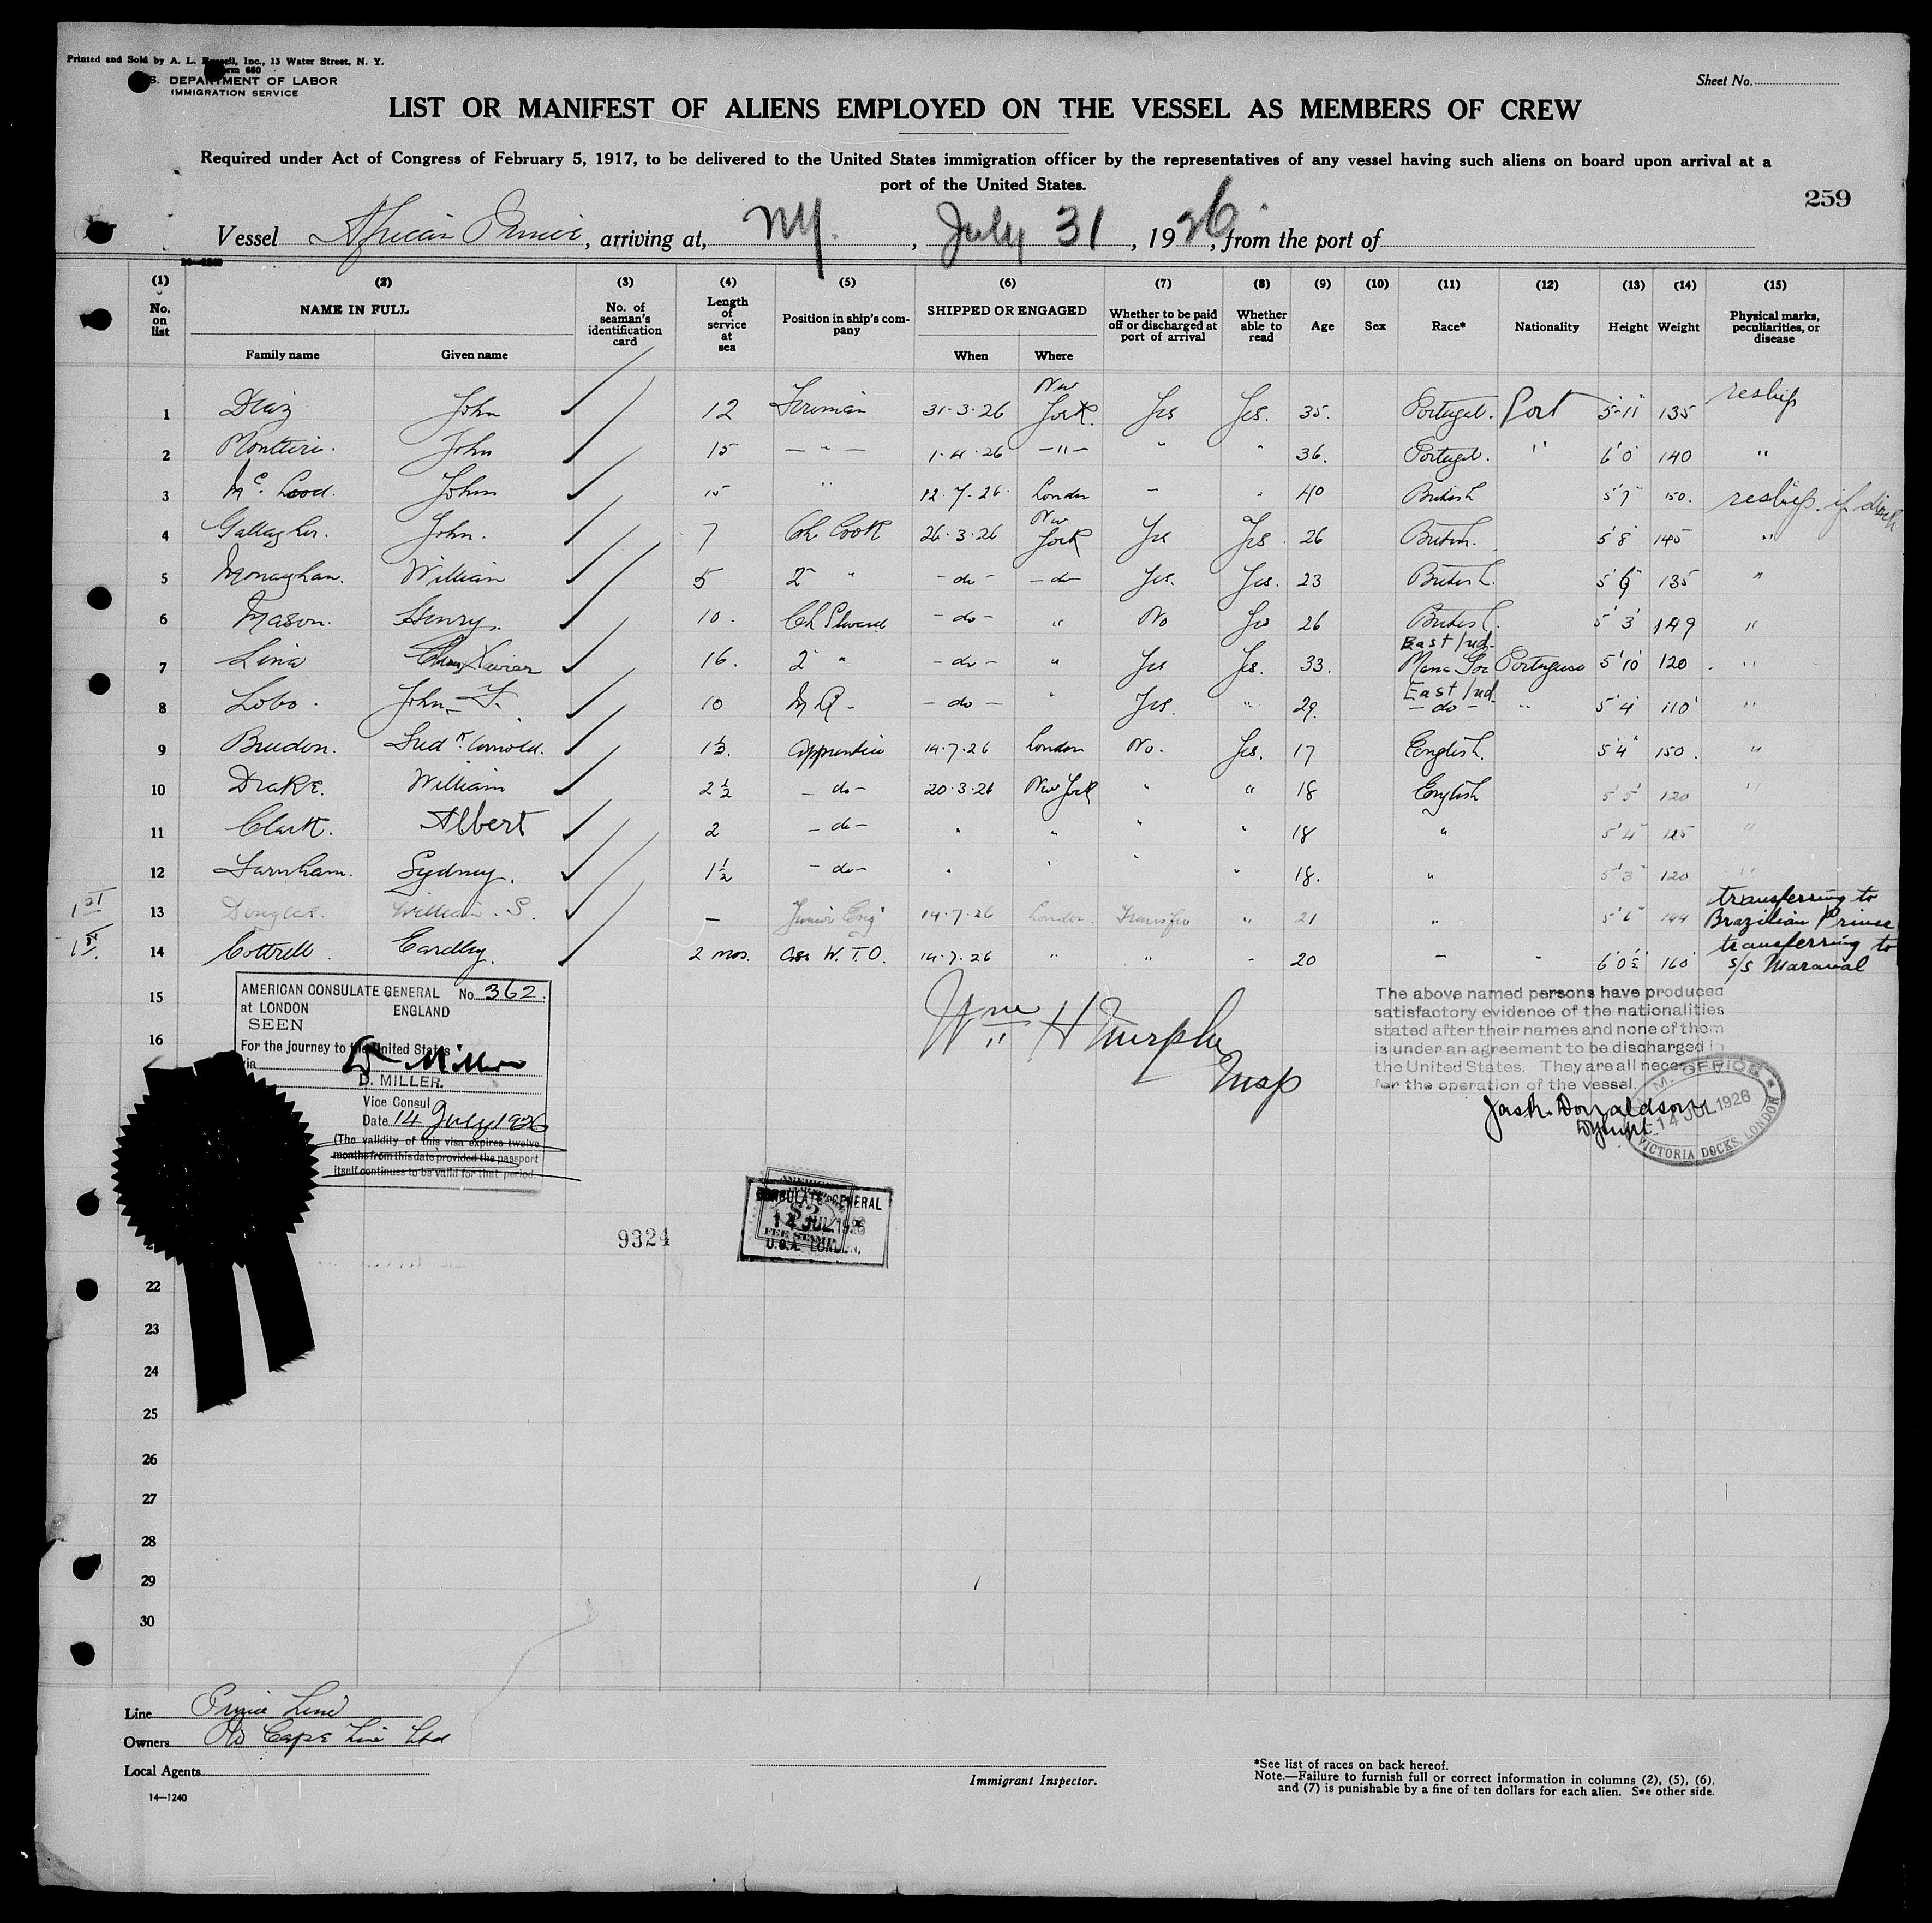 Printed and Sold by A. L. Russell, Inc., 13 Water Street, N. Y.
Form 680
U.S. DEPARTMENT OF LABOR
IMMIGRATION SERVICE
Sheet No.
LIST OR MANIFEST OF ALIENS EMPLOYED ON THE VESSEL AS MEMBERS OF CREW
Required under Act of Congress of February 5, 1917, to be delivered to the United States immigration officer by the representatives of any vessel having such aliens on board upon arrival at a
port of the United States.
259
Vessel African Prince, arriving at, NY., July 31, 1926, from the port of
14-1240
(1) (2) (3) (4) (5) (6) (7) (8) (9) (10) (11) (12) (13) (14) (15)
No. on list NAME IN FULL No. of seaman's identification card Length of service at sea Position in ship's company SHIPPED OR ENGAGED Whether to be paid off or discharged at port of arrival Whether able to read Age Sex Race* Nationality Height Weight Physical marks, peculiarities, or disease
Family name Given name When Where
1 Diaz John 12 Fireman 31·3·26 New York. Yes Yes. 35. Portugal. Port 5'-11" 135 reship
2 Monteiro. John 15 — " — 1·4·26 —"— " " 36. Portugal. " 6'0 140 "
3 John 15 " 12·7·26 London - " 40 British 5'7" 150. reship if disch
4 Gallagher. John. 7 Ch. Cook 26·3·26 New York Yes Yes 26 British. 5'8 145 "
5 Monaghan. William 5 2" " - do - - do - Yes. Yes. 23 British. 5'9" 135 "
6 Mason. Henry. 10. Ch Steward - do - " No Yes 26 British. 5'3 149 "
7 Lima Xavier 16. 2" " - do - " Yes Yes. 33. East Ind. Portuguese 5'10 120 "
8 Lobo. John F. 10 - do - " Yes. " 29. East Ind. - do - " 5'4 110 "
9 Fred Arnold. 1½. Apprentice 14·7·26 London No. Yes. 17 English. 5'4" 150. "
10 Drake. William 2½ - do - 20·3·26 New York " " 18 English 5'5" 120 "
11 Clark. Albert 2 - do - " " " " 18 " 5'4" 125 "
12 Farnham. Sydney. 1½ - do - " " " " 18. " 5'3" 120 "
1st 13 Douglas. William. S. — Junior Eng' 14·7·26 London. Transfer " 21 " 5'6" 144 transferring to Brazilian Prince
1st. 14 Cottrell. Eardley. 2 mos. W. T. O. 14·7·26 " " - 20 " " 6'0½ 160 transferring to s/s Maraval
15
16
AMERICAN CONSULATE GENERAL No. 362.
at LONDON ENGLAND
SEEN
For the journey to the United States
via
D Miller
D. MILLER.
Vice Consul
Date 14 July 1926
(The validity of this visa expires twelve
months from this date provided the passport
itself continues to be valid for that period.
Wm H Murphy
Insp
The above named persons have produced
satisfactory evidence of the nationalities
stated after their names and none of them
is under an agreement to be discharged in
the United States. They are all necessary
for the operation of the vessel.
Donaldson
M. M. OFFICE
14 JUL 1926
VICTORIA DOCKS, LONDON
AMERICAN
CONSULATE GENERAL
$2
14 JUL 1926
FEE STAMP
U.S.A. LONDON.
9324
22
23
24
25
26
27
28
29
30
Line Prince Line
Owners Cape Line Ltd
Local Agents
14—1240
Immigrant Inspector.
*See list of races on back hereof.
Note.—Failure to furnish full or correct information in columns (2), (5), (6),
and (7) is punishable by a fine of ten dollars for each alien. See other side.